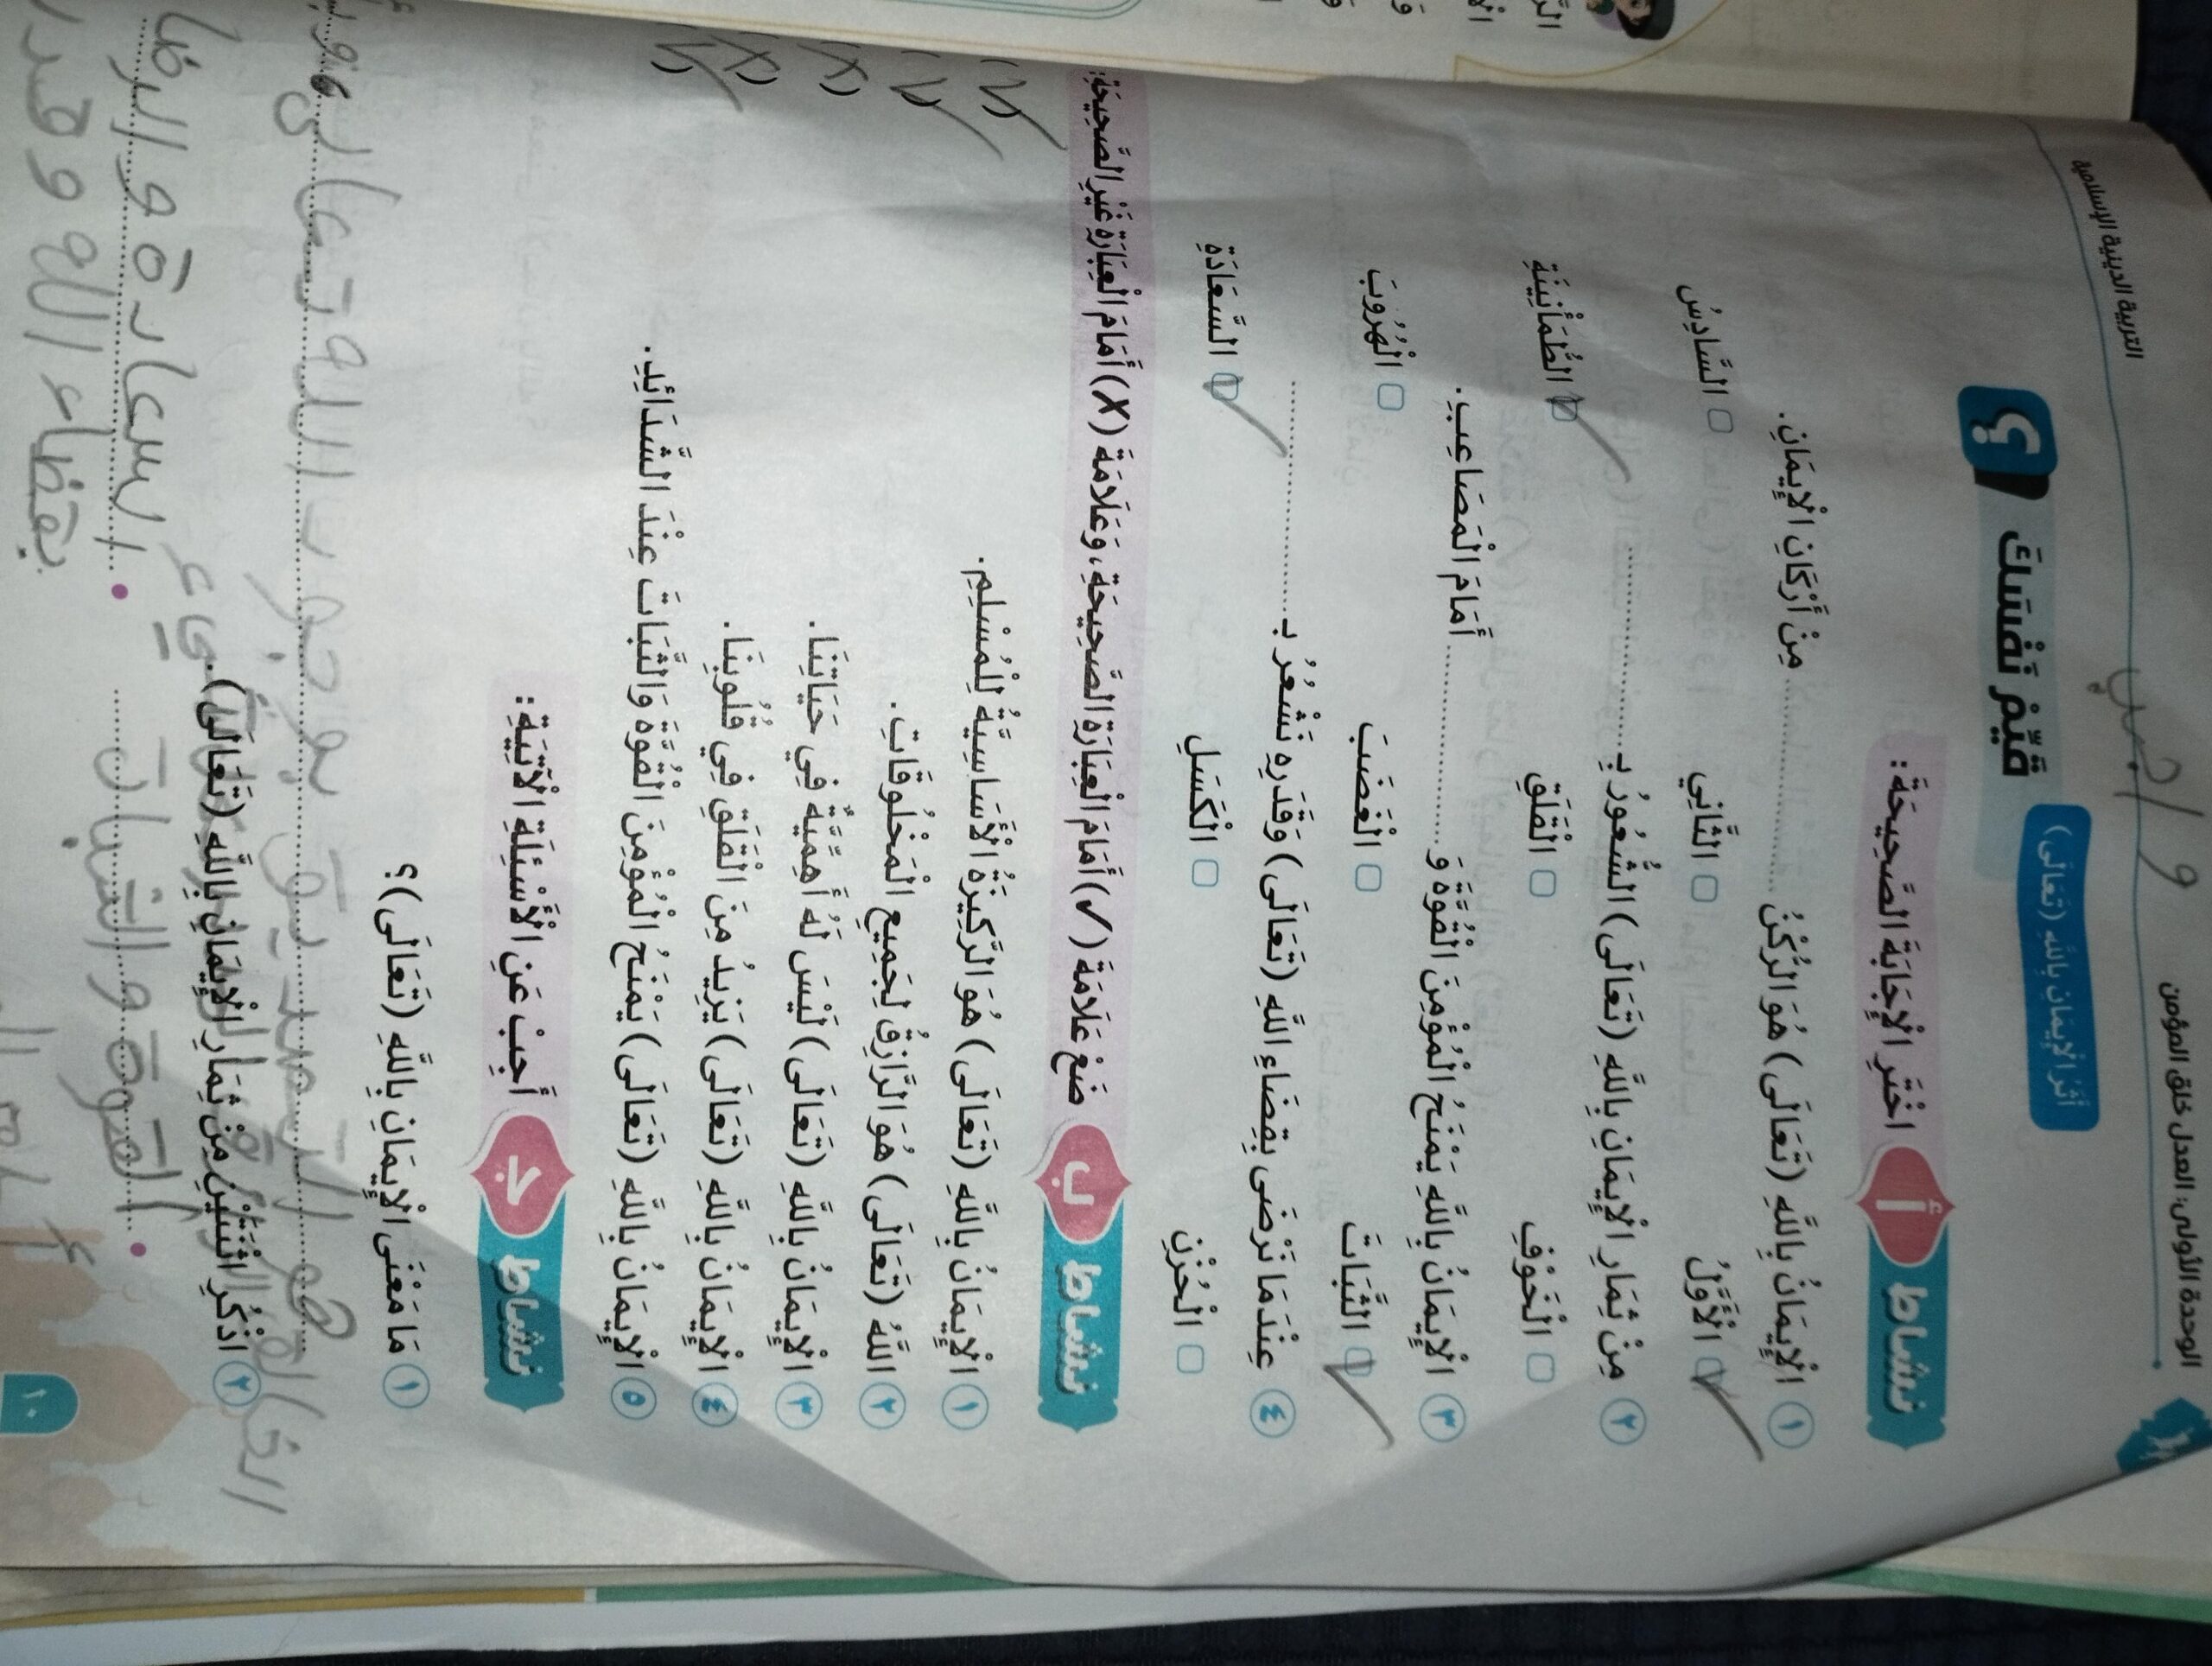 الوحدة الأولى: العدل خلق المؤمن
التربية الدينية الإسلامية
واجب
أَثَرُ الْإِيمَانِ بِاللَّهِ (تَعَالَى)
قَيِّمْ نَفْسَكَ
؟
نشاط أ اخْتَرِ الْإِجَابَةَ الصَّحِيحَةَ:
١ الْإِيمَانُ بِاللَّهِ (تَعَالَى) هُوَ الرُّكْنُ .................. مِنْ أَرْكَانِ الْإِيمَانِ.
الْأَوَّلُ الثَّانِي السَّادِسُ
٢ مِنْ ثِمَارِ الْإِيمَانِ بِاللَّهِ (تَعَالَى) الشُّعُورُ بِـ ..................
الْخَوْفِ الْقَلَقِ الطُّمَأْنِينَةِ
٣ الْإِيمَانُ بِاللَّهِ يَمْنَحُ الْمُؤْمِنَ الْقُوَّةَ وَ .................. أَمَامَ الْمَصَاعِبِ.
الثَّبَاتَ الْغَضَبَ الْهُرُوبَ
٤ عِنْدَمَا تَرْضَى بِقَضَاءِ اللَّهِ (تَعَالَى) وَقَدَرِهِ تَشْعُرُ بِـ ..................
الْحُزْنِ الْكَسَلِ السَّعَادَةِ
نشاط ب ضَعْ عَلَامَةَ (✓) أَمَامَ الْعِبَارَةِ الصَّحِيحَةِ، وَعَلَامَةَ (X) أَمَامَ الْعِبَارَةِ غَيْرِ الصَّحِيحَةِ:
١ الْإِيمَانُ بِاللَّهِ (تَعَالَى) هُوَ الرَّكِيزَةُ الْأَسَاسِيَّةُ لِلْمُسْلِمِ. (✓)
٢ اللَّهُ (تَعَالَى) هُوَ الرَّازِقُ لِجَمِيعِ الْمَخْلُوقَاتِ. (✓)
٣ الْإِيمَانُ بِاللَّهِ (تَعَالَى) لَيْسَ لَهُ أَهَمِّيَّةٌ فِي حَيَاتِنَا. (X)
٤ الْإِيمَانُ بِاللَّهِ (تَعَالَى) يَزِيدُ مِنَ الْقَلَقِ فِي قُلُوبِنَا. (X)
٥ الْإِيمَانُ بِاللَّهِ (تَعَالَى) يَمْنَحُ الْمُؤْمِنَ الْقُوَّةَ وَالثَّبَاتَ عِنْدَ الشَّدَائِدِ. (✓)
نشاط ج أَجِبْ عَنِ الْأَسْئِلَةِ الْآتِيَةِ:
١ مَا مَعْنَى الْإِيمَانِ بِاللَّهِ (تَعَالَى)؟
هو التصديق بوجود الله تعالى
٢ اذْكُرِ اثْنَتَيْنِ مِنْ ثِمَارِ الْإِيمَانِ بِاللَّهِ (تَعَالَى).
القوة والثبات
السعادة والرضا
بقضاء الله وقدر
١٠